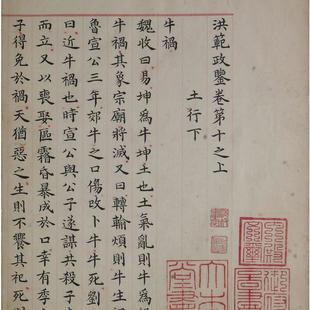 洪範政鑒卷第十之上
土行下
牛禍
魏收曰易坤為牛坤土也土氣亂則牛為
牛禍其象宗廟將滅又曰轉輸煩則牛生
魯宣公三年郊牛之口傷改卜牛牛死劉
曰近牛禍也時宣公與公子遂謀共殺子
而立又以喪娶區霿昏暴成於口幸有季
子得免於禍天猶惡之生則不饗其祀死
大本堂書